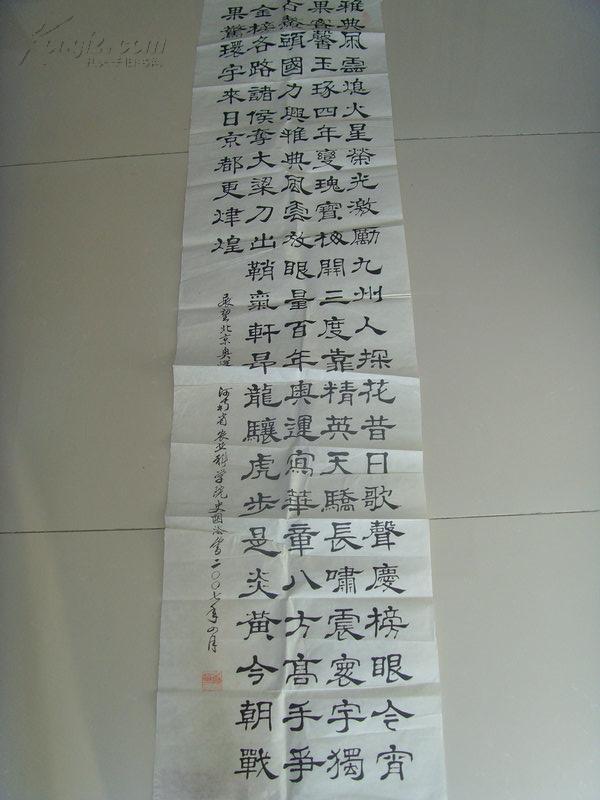 雅典風雲熄火星榮光激勵九州人探花昔日歌聲慶榜眼今宵
馨玉琢四年變瑰寶開三度靠精英天驕長嘯震寰宇獨
占鰲頭國力興雅典風雲放眼量百年奧運寫華章八方高手爭
金榜各路諸侯奪大梁刀出鞘氣軒昂龍驤虎步是炎黃今朝戰
果驚環宇來日京都更煌
展望北京奥運 河南省农业科学院史國書二〇〇七年四月